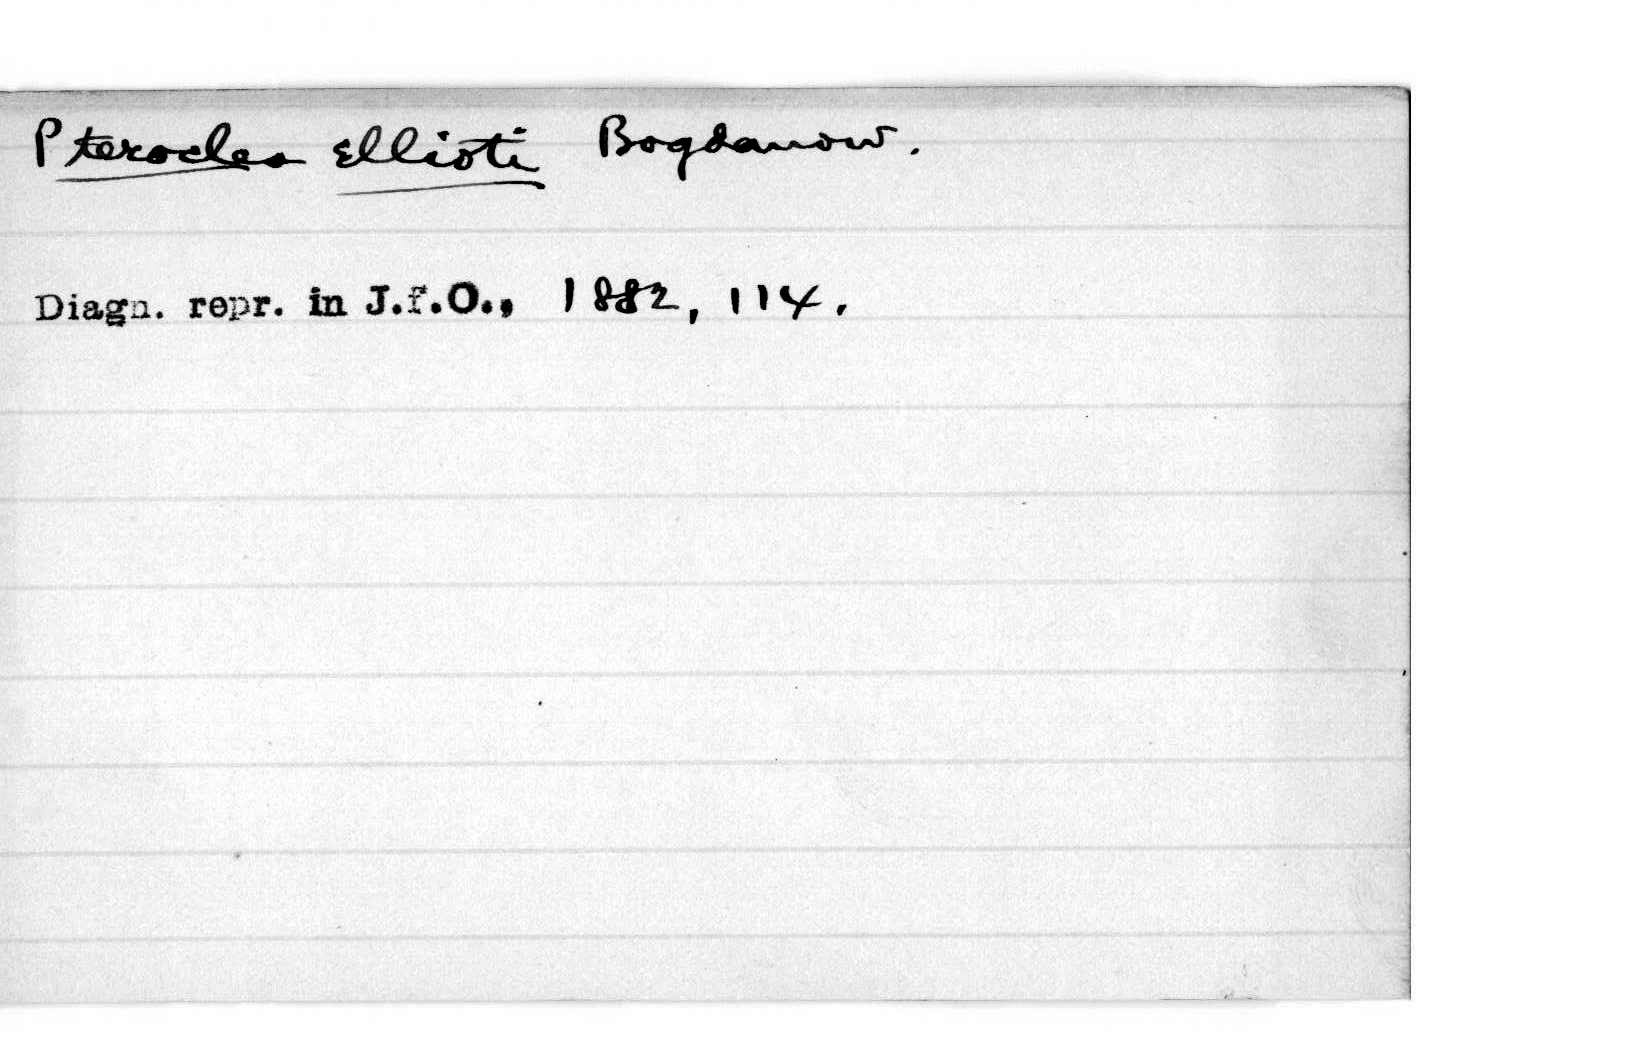 Pterocles ellioti Bogdanow.
Diagn. repr. in J.f.O., 1882, 114.